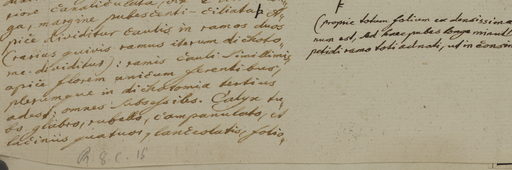 riore canaliculata,
ga, margine pubescenti-ciliata. A,
pice dividitur caulis in ramos duos
(rarius quivis ramus iterum dichoto,
me dividitur): ramis cauli simillimis
apice florem unicum ferentibus,
plerumque in dichotomia tertius
adest; omnes subsessiles. Calyx tu,
bo glabro, rubello, campanulato, et
laciniis quatuor lanceolatis, folio,
(proprie totum folium ex densissima
num est, sed haec pubes longe minutl
petioli ramo toti adnati, ut in
R. 8. C. 15